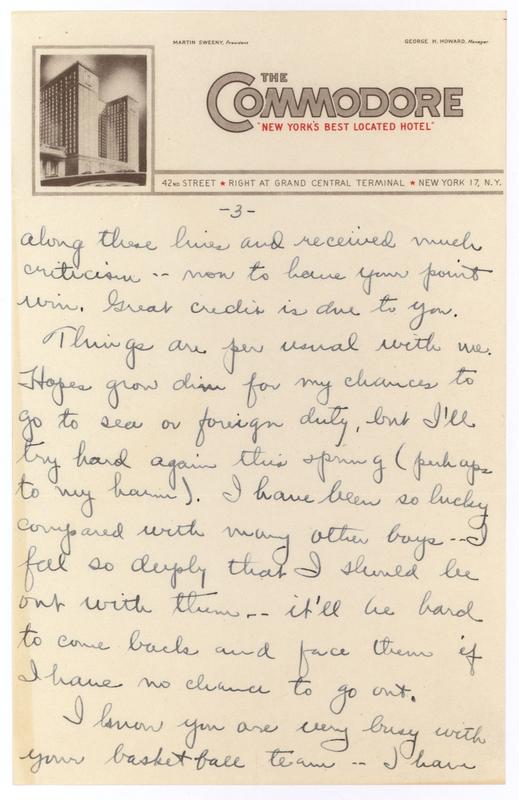 MARTIN SWEENY, President
GEORGE H. HOWARD, Manager
THE
COMMODORE
"NEW YORK'S BEST LOCATED HOTEL"
42ND STREET ★ RIGHT AT GRAND CENTRAL TERMINAL ★ NEW YORK 17, N.Y.
-3-
along these lines and received much
criticism -- now to have your point
win. Great credit is due to you.
Things are per usual with me.
Hopes grow dim for my chances to
go to sea or foreign duty, but I'll
try hard again this spring (perhaps
to my harm). I have been so lucky
compared with many other boys -- I
feel so deeply that I should be
out with them -- it'll be hard
to come back and face them if
I have no chance to go out.
I know you are very busy with
your basketball team -- I have